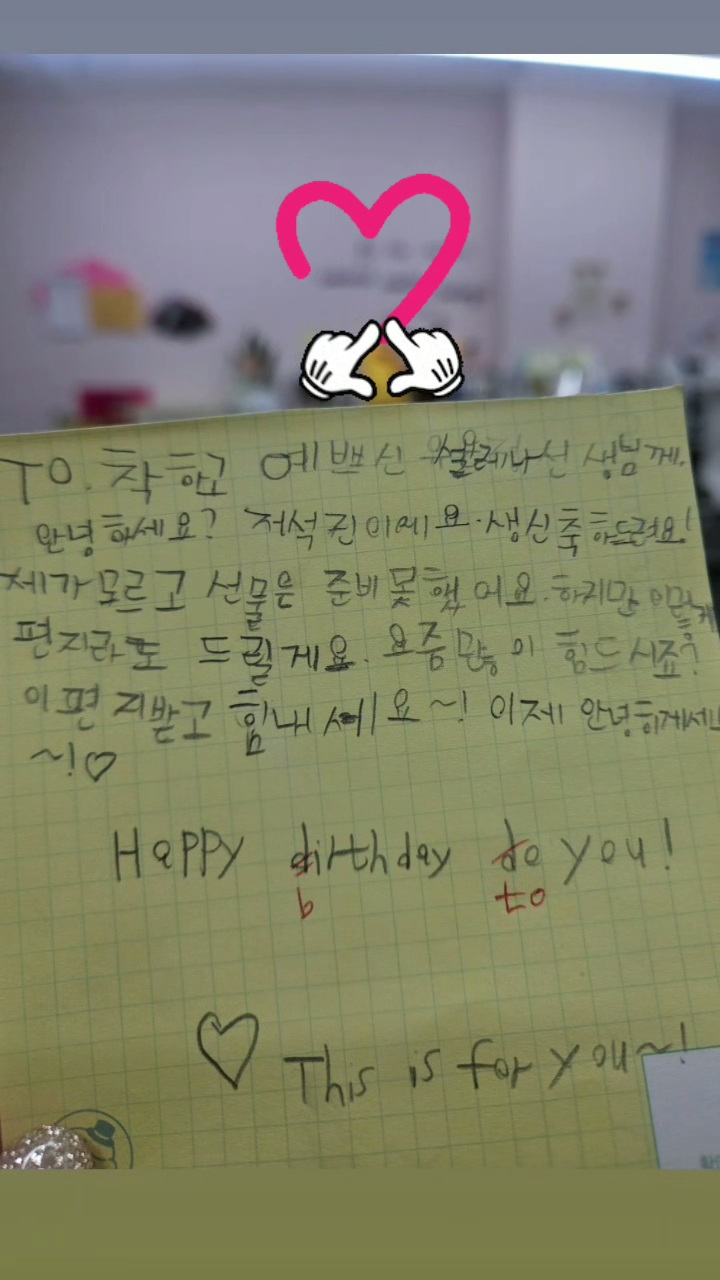 TO. 착하고 예쁘신 셀레나선생님께.
안녕하세요? 저석진이에요. 생신축하드려요!
제가모르고 선물은 준비못했어요. 하지만 이렇게
편지라도 드릴게요. 요즘많이 힘드시죠?
이편지받고 힘내세요~! 이제 안녕히계세요
~!♡
Happy dirthday do you!
b to
♡ This is for you~!